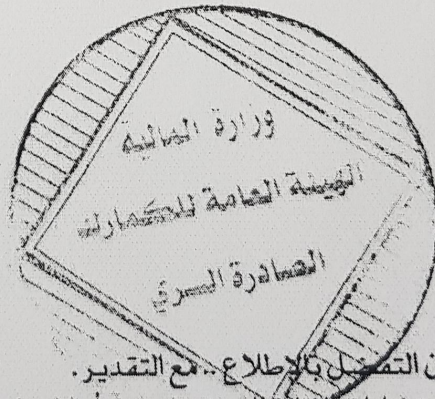 وزارة المالية
الهيئة العامة للكمارك
الصادرة السري
التفضل بالإطلاع .. مع التقدير .